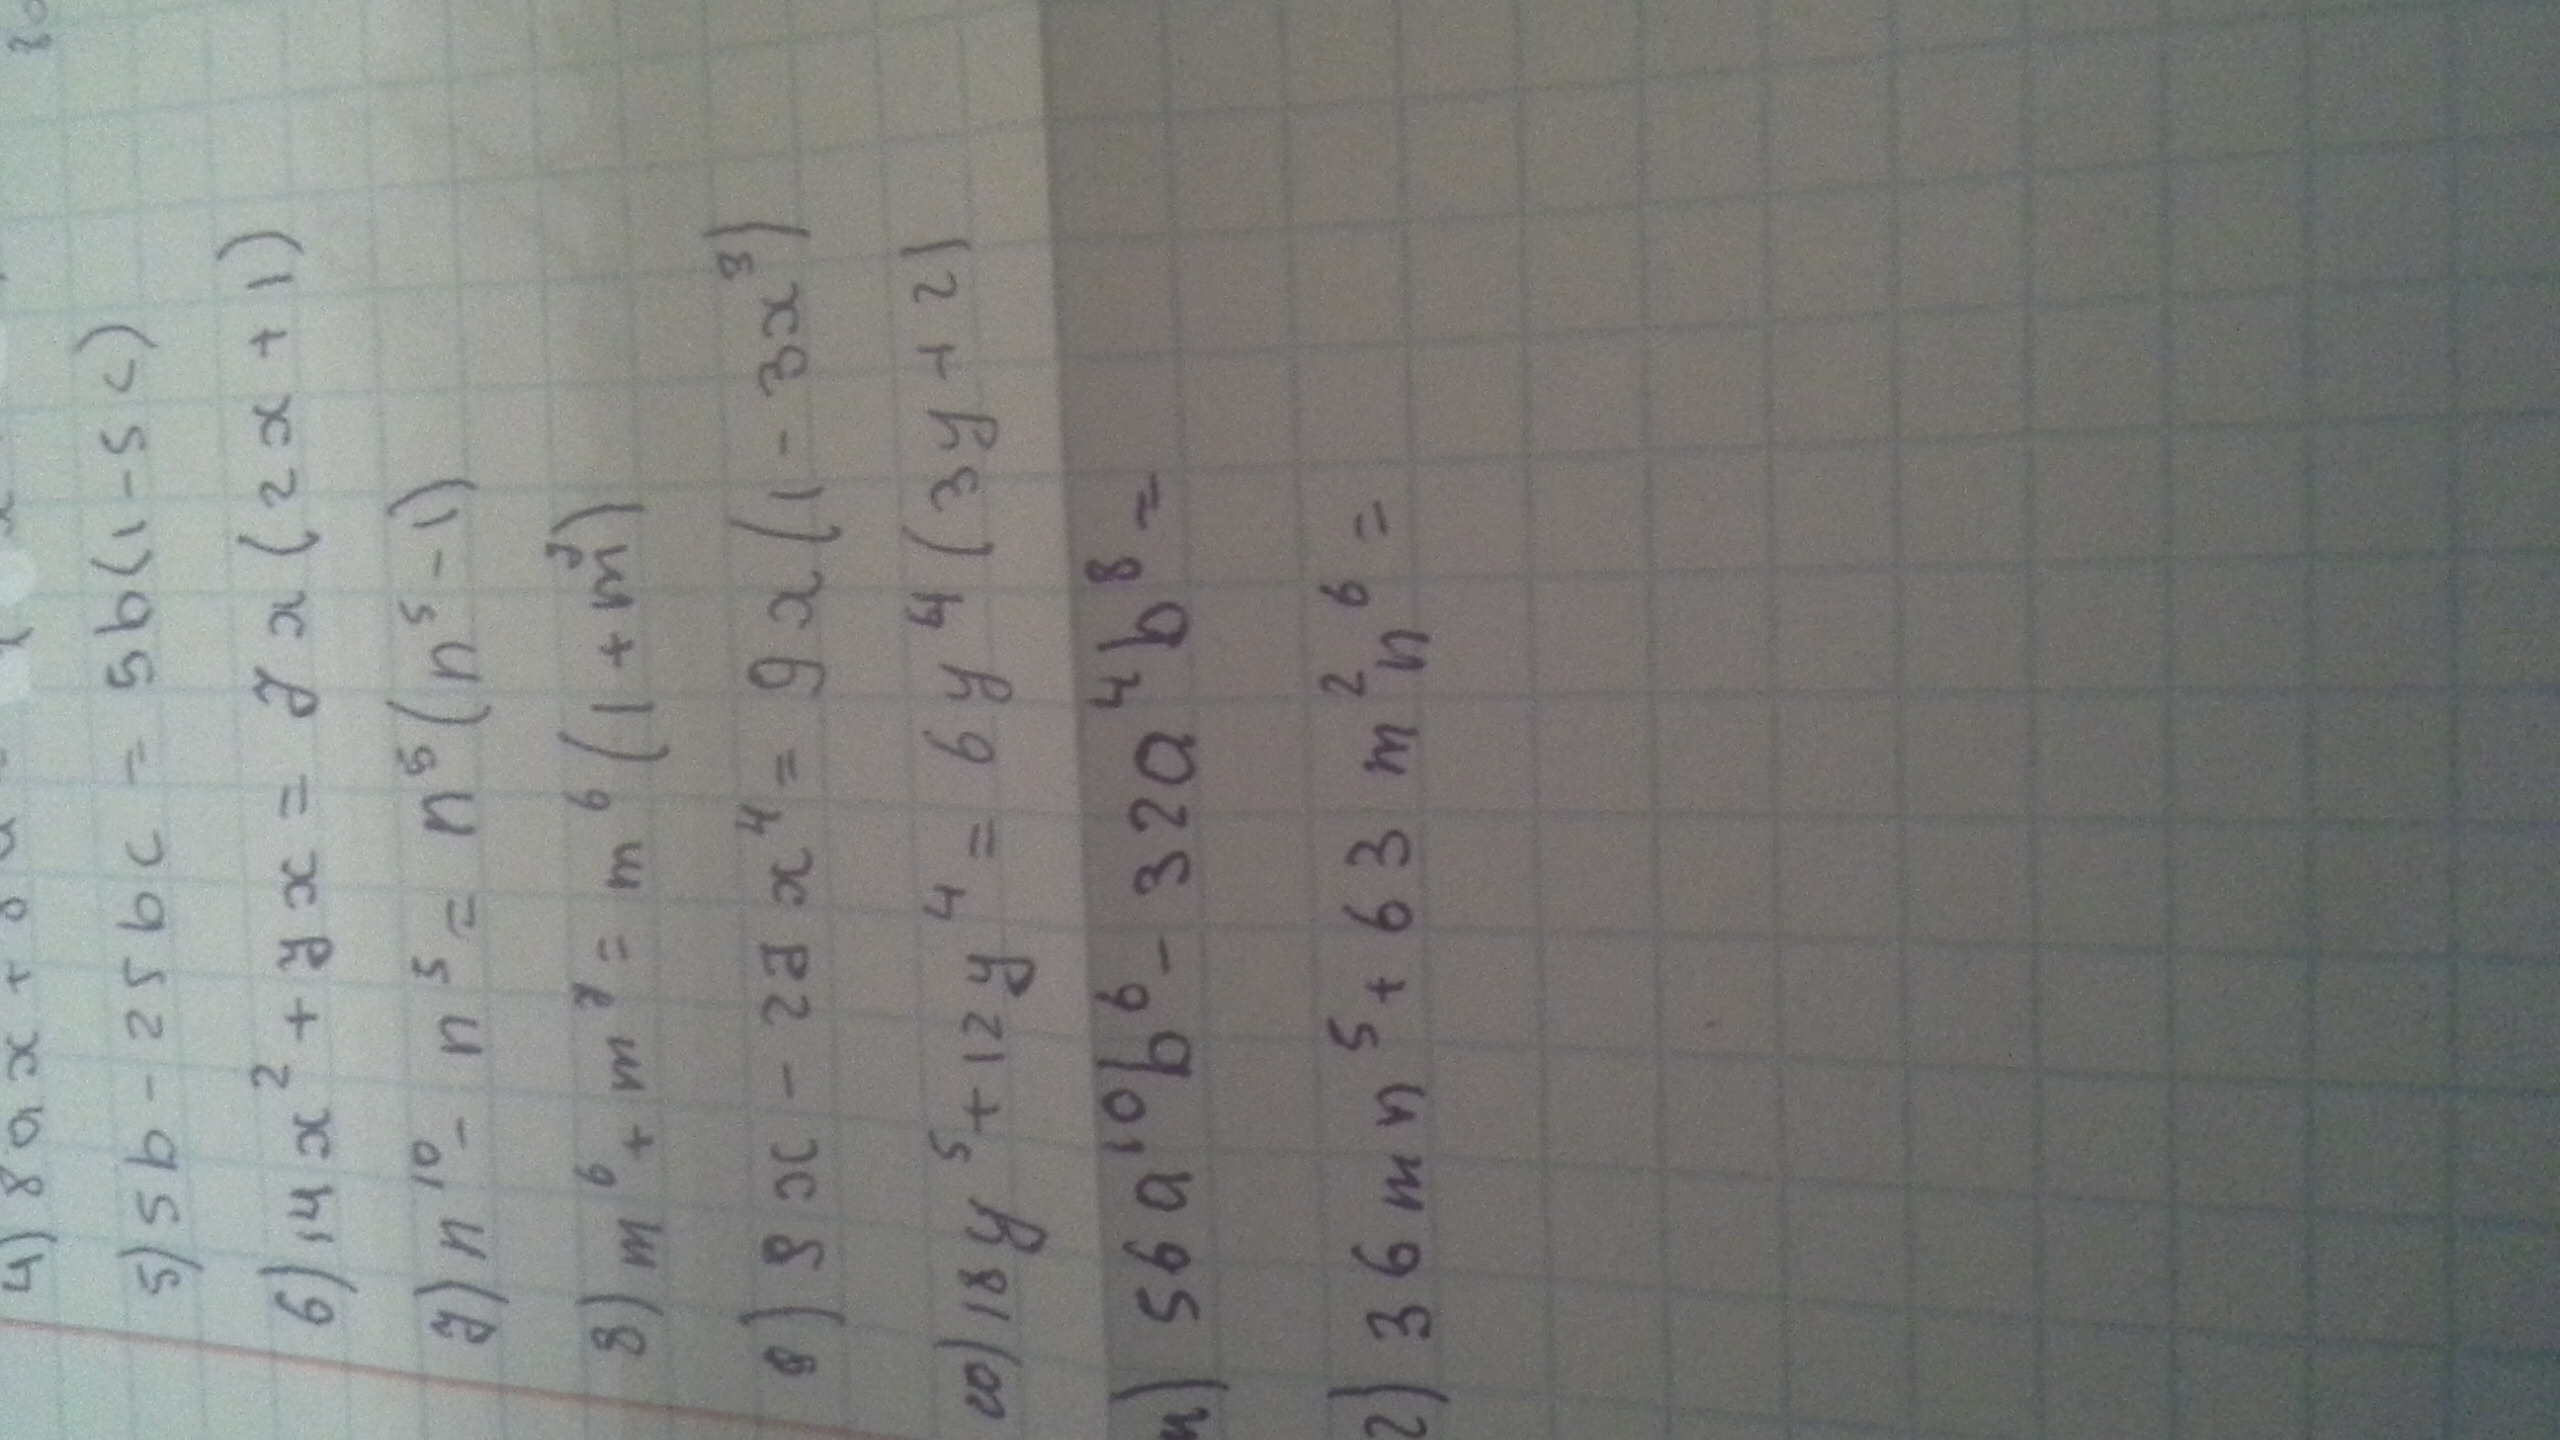 4) 8ax + 8a
5) 5b - 25bc = 5b(1-5c)
6) 14x² + 7x = 7x(2x+1)
7) n¹⁰ - n⁵ = n⁵(n⁵-1)
8) m⁶ + m⁷ = m⁶(1+m⁷)
9) 9x - 27x⁴ = 9x(1-3x³)
10) 18y⁵ + 12y⁴ = 6y⁴(3y+2)
11) 56a¹⁰b⁶ - 32a⁴b⁸ =
2) 36mn⁵ + 63m²n⁶ =